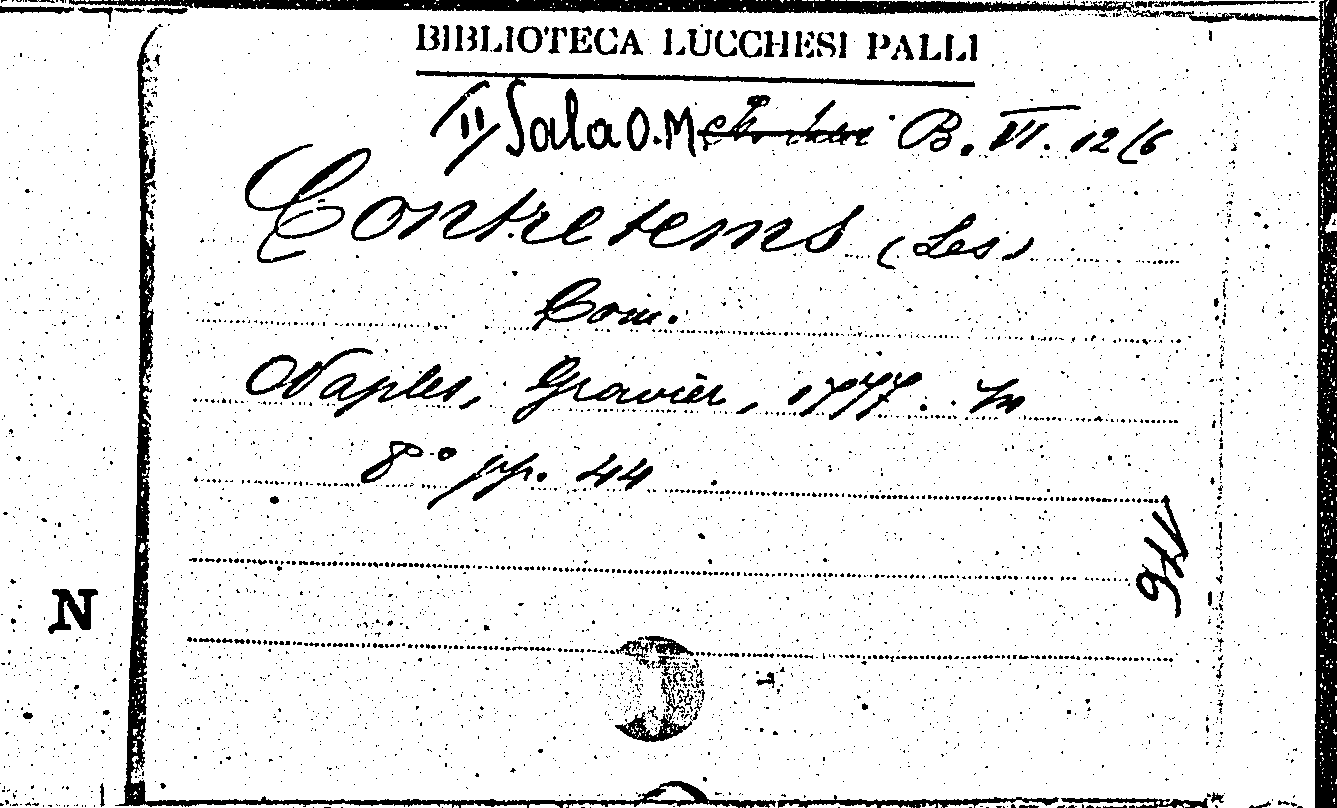 BIBLIOTECA LUCCHESI PALLI
II Sala O.M B. VI. 12/6
Contretems (Les)
Com.
Naples, Gravier, 1777. In
8° pp. 44
N